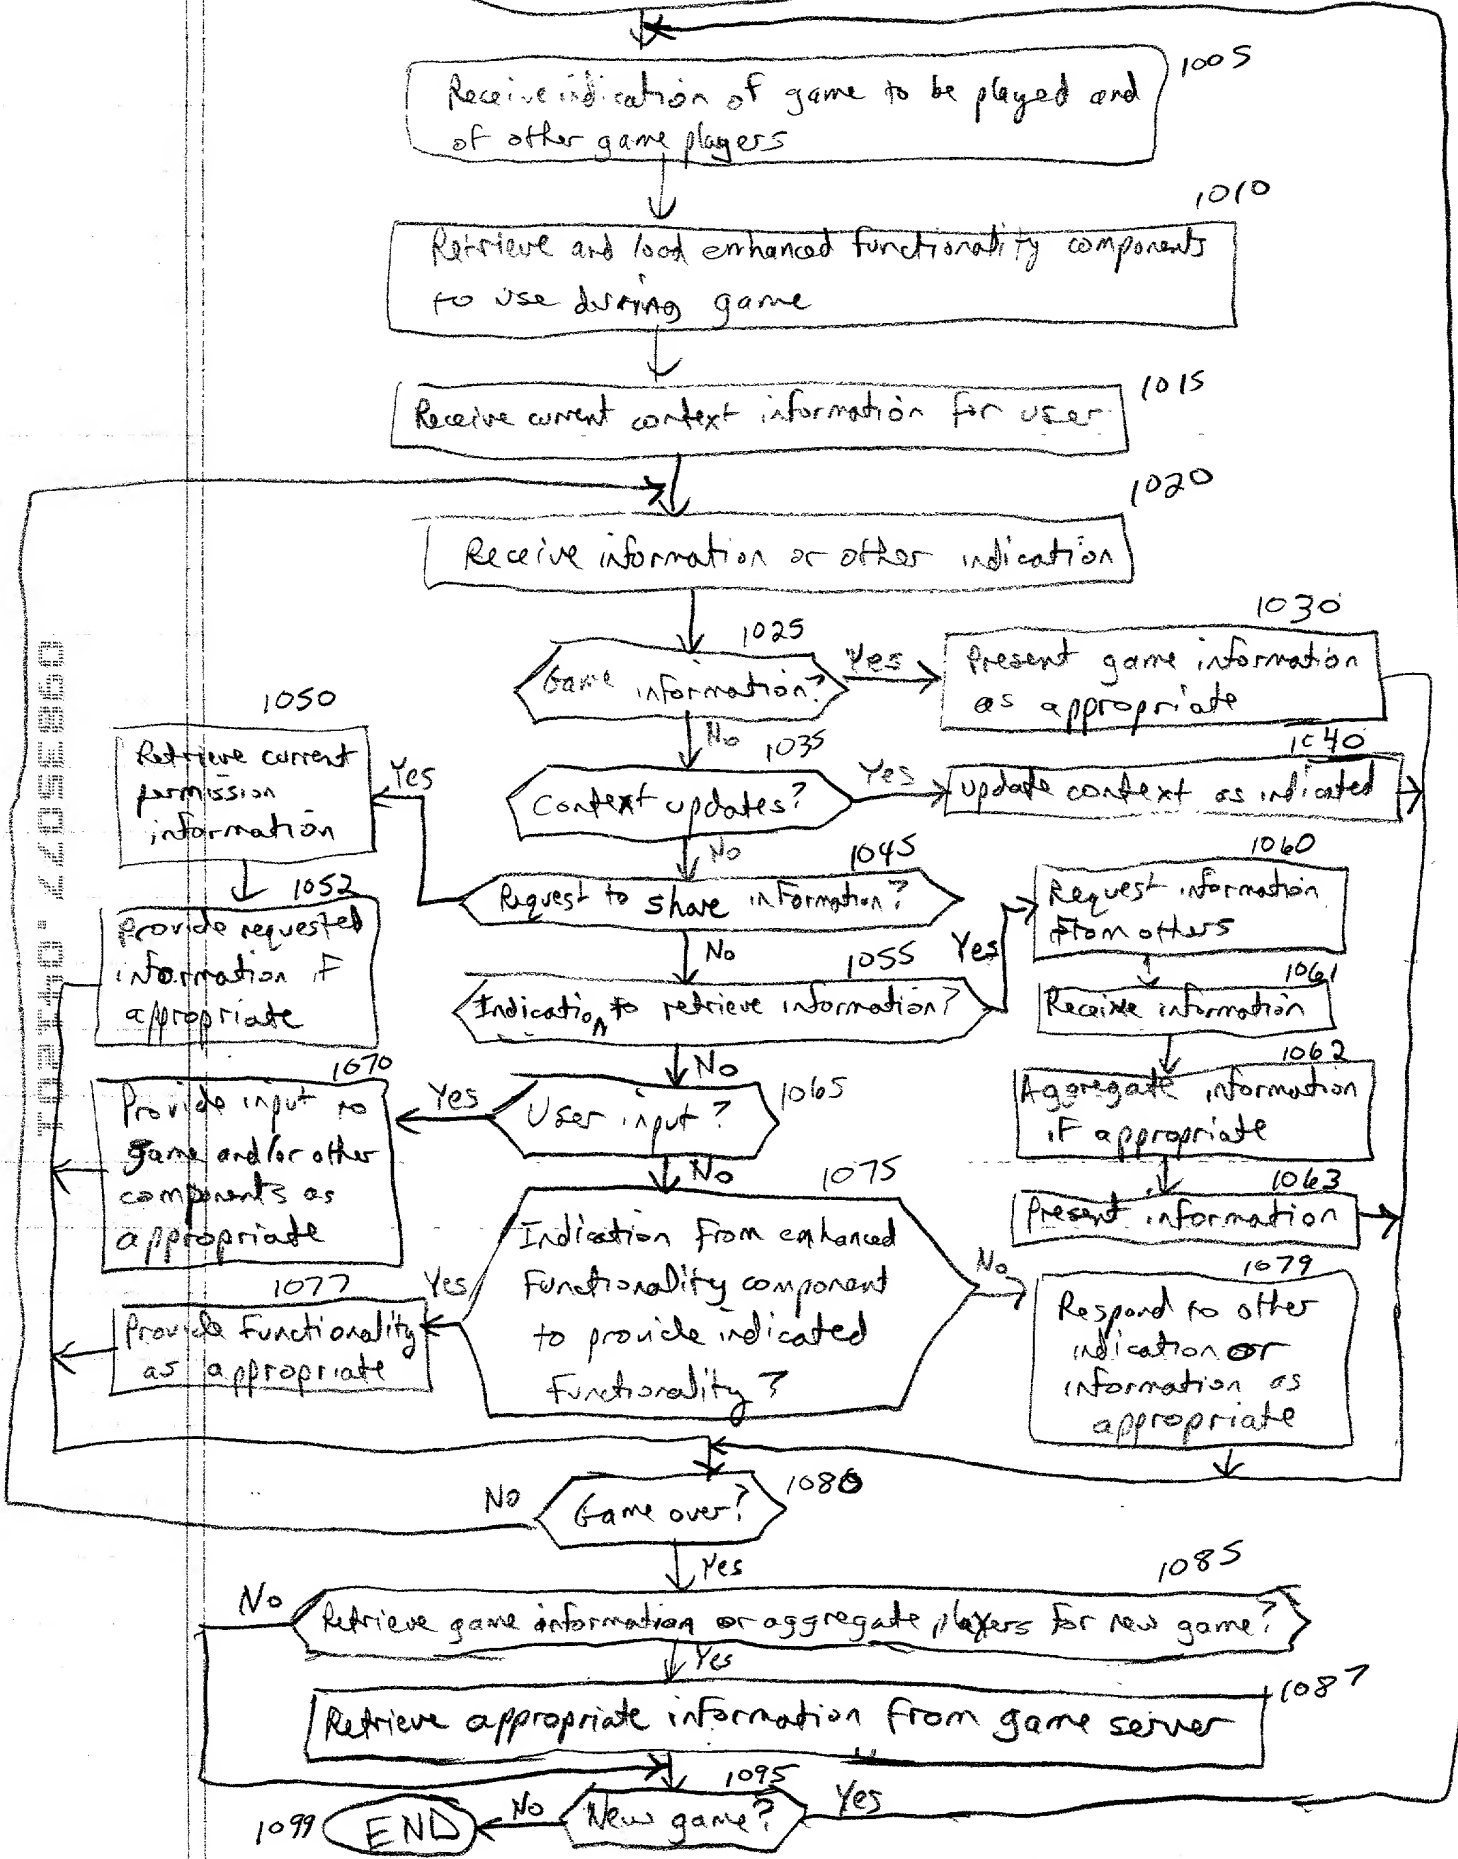 1005
Receive indication of game to be played and
of other game players
1010
Retrieve and load enhanced functionality components
to use during game
1015
Receive current context information for user
1020
Receive information or other indication
1025
Game information?
Yes
No
1030
Present game information
as appropriate
1035
Context updates?
Yes
No
1040
update context as indicated
1045
Request to share information?
Yes
No
1050
Retrieve current
permission
information
1052
Provide requested
information if
appropriate
1055
Indication to retrieve information?
Yes
No
1060
Request information
from others
1061
Receive information
1062
Aggregate information
if appropriate
1063
Present information
1065
User input?
Yes
No
1070
Provide input to
game and/or other
components as
appropriate
1075
Indication from enhanced
functionality component
to provide indicated
functionality?
Yes
No
1077
Provide functionality
as appropriate
1079
Respond to other
indication or
information as
appropriate
1080
Game over?
No
Yes
1085
Retrieve game information or aggregate players for new game?
No
Yes
1087
Retrieve appropriate information from game server
1095
New game?
Yes
No
1099
END
09835077.041201